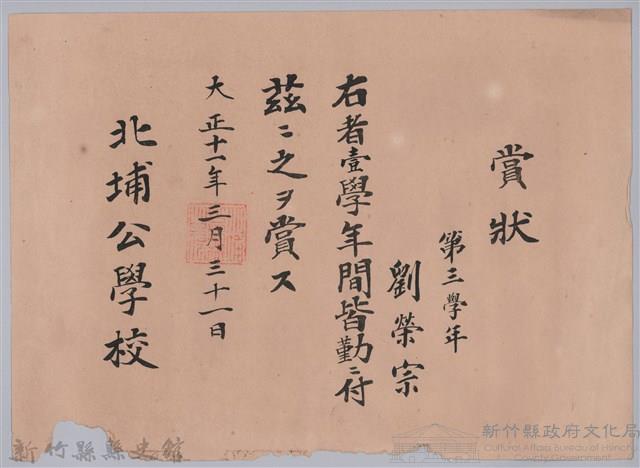 賞狀
第三學年
劉榮宗
右者壹學年間皆勤ニ付
茲ニ之ヲ賞ス
大正十一年三月三十一日
北埔公學校
新竹縣縣史館
新竹縣政府文化局
Cultural Affairs Bureau of Hsinchu
County Government